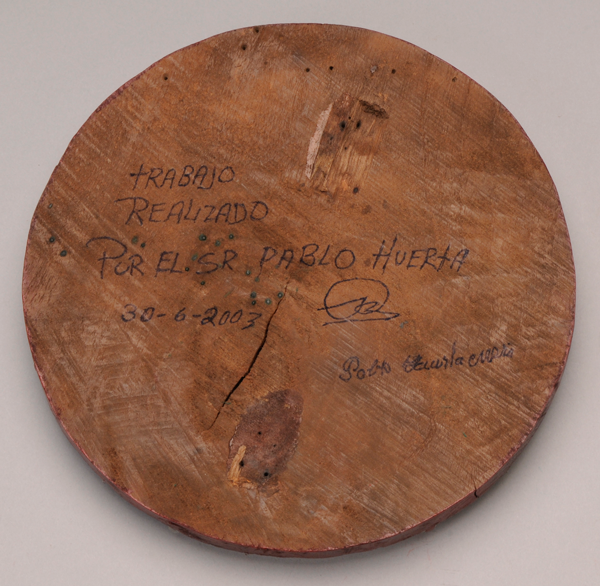 TRABAJO
REALIZADO
POR EL SR. PABLO HUERTA
30-6-2003
Pablo Huerta